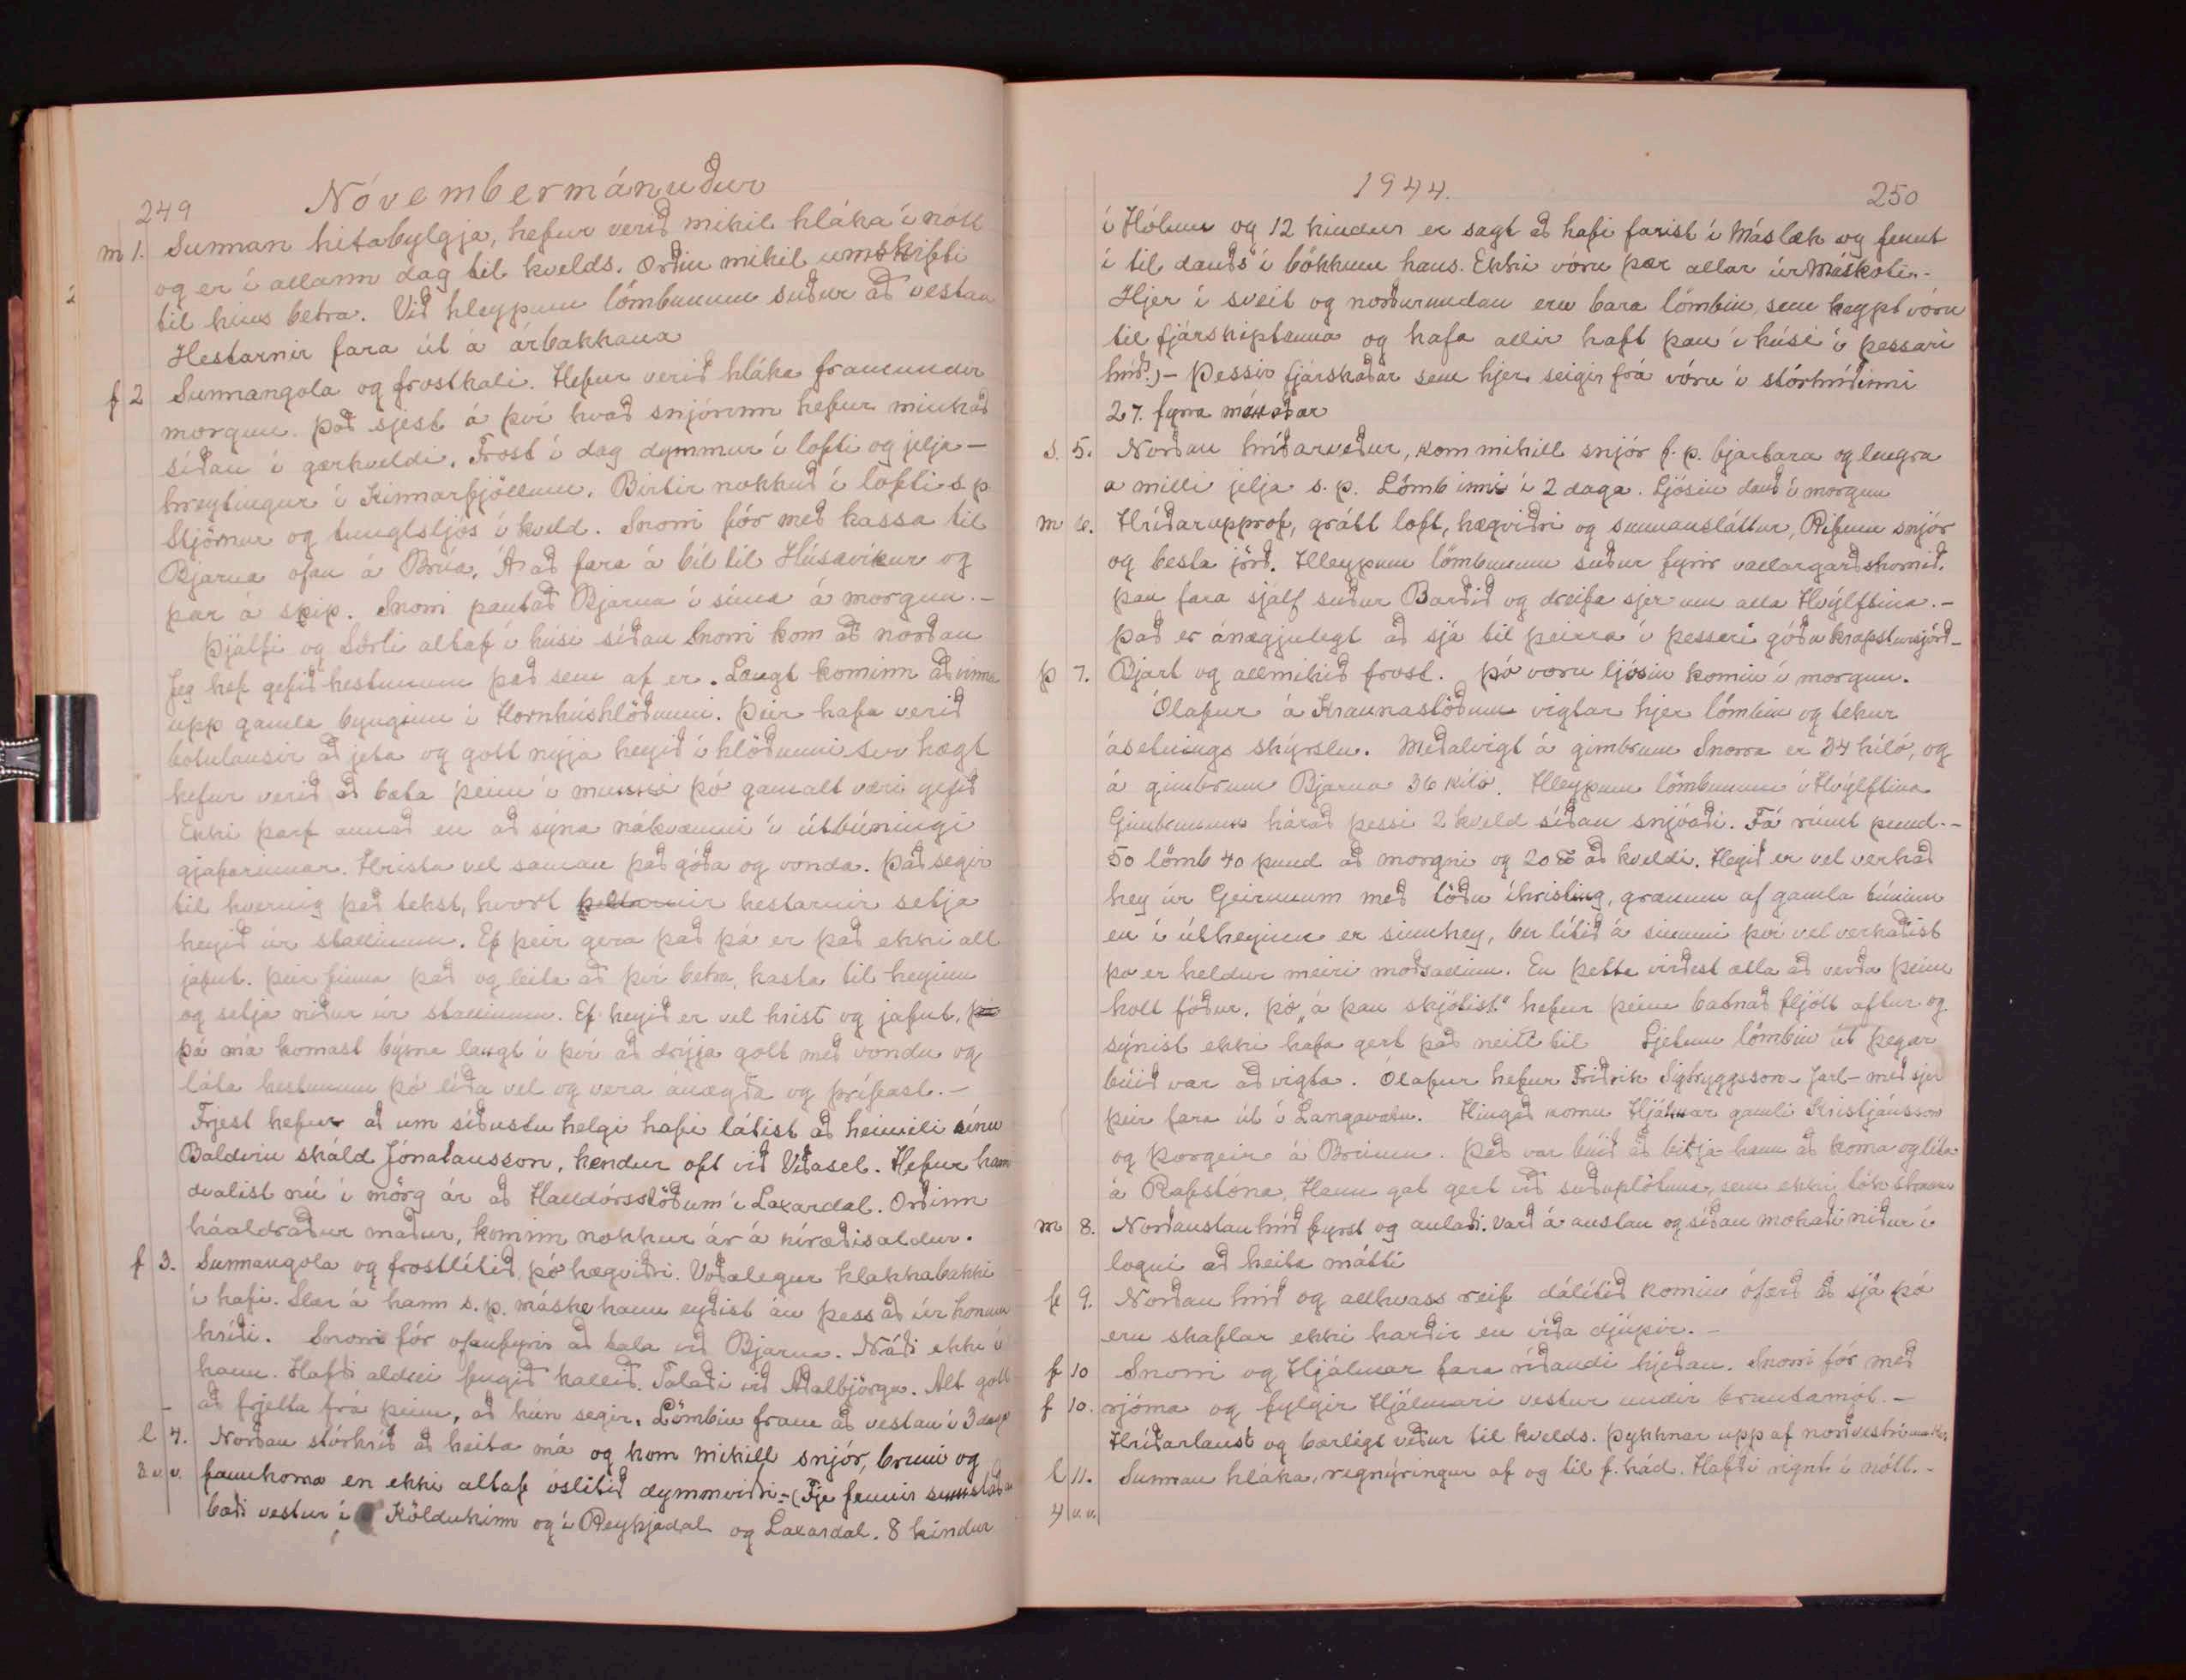 249 Nóvembermánuður
m 1. Sunnan hitabylgja, hefur verið mikil hláka í nótt
og er í allann dag til kvelds. Orðin mikil umskifti
til hins betra. Við hleypum lömbunum suður að vestan
Hestarnir fara út á árbakkana
f 2 Sunnangola og frostkali. Hefur verið hláka framundir
morgun. það sjest á því hvað snjórinn hefur minkað
síðan í gærkveldi. Frost í dag dymmur í lofti og jelja-
hreytingur í Kinnarfjöllum. Birtir nokkuð í lofti s.p.
Stjörnur og tunglsljós í kveld. Snorri fór með kassa til
Bjarna ofan á Brúa. Á að fara á bíl til Húsavíkur og
þar á skip. Snorri pantað Bjarna í síma á morgun. -
Þjálfi og Sörli altaf í húsi síðan Snorri kom að norðan
Jeg hef gefið hestunum það sem af er. Langt kominn að vinna
upp gamla bynginn í Hornhúshlöðunni. Þeir hafa verið
botulausir að jeta og gott nýja heyið í hlöðunni svo hægt
hefur verið að bæta þeim í munni þó gamalt væri gefið
Ekki þarf annað en að sýna nákvæmni í útbúningi
gjafarinnar. Hrista vel saman það góða og vonda. Það segir
til hvernig það tekst, hvort hestarnir setja
heyið úr stallinum. Ef þeir gera það þá er það ekki alt
jafnt. þeir finna það og leita að því betra, kasta til heyinu
og setja niður úr stallinum. Ef heyið er vel hrist og jafnt,
þá má komast býsna langt í því að drýja gott með vondu og
láta hestunum þó líða vel og vera ánægða og þrífast. -
Frjest hefur að um síðustu helgi hafi látist að heimili sínu
Baldvin skáld Jónatansson, kendur oft við Víðasel. Hefur hann
dvalist nú í mörg ár að Halldórsstöðum í Laxardal. Orðinn
háaldraður maður, kominn nokkur ár á níræðisaldur.
f 3. Sunnangola og frostlítið þó hægviðri. Voðalegur klakkabakki
í hafi. Slær á hann s.p. máske hann eyðist án þess að úr honum
hríði. Snorri fór ofanfyrir að tala við Bjarna. Náði ekki í
hann. Hafði aldrei fengið kallið. Talaði við Aðalbjörgu. Alt gott
að frjetta frá þeim, að hún segir. Lömbin fram að vestan í 3 daga
l 4. Norðan stórhríð að heita má og kom mikill snjór, bruni og
3 v.v. fannkoma en ekki altaf óslitið dymmviðri - (Fje fennir sumstaðar
bæði vestur í Köldukinn og í Reykjadal og Laxardal. 8 kindur
1944. 250
í Hólum og 12 kindur er sagt að hafi farist í Máslæk og fennt
í til dauðs í bökkum hans. Ekki vóru þær allar úr Máskoti. -
Hjer í sveit og norðurundan eru bara lömbin, sem keypt vóru
til fjárskiptanna og hafa allir haft þau í húsi í þessari
hríð.) - Þessir fjárskaðar sem hjer seigir frá vóru í stórhríðinni
27. fyrra mánaðar
s. 5. Norðan hríðarveður, kom mikill snjór f.p. bjartara og lengra
a milli jelja s.p. Lömb inni í 2 daga. Ljósin dauð í morgun
m 6. Hríðarupprof, grátt loft, hægviðri og sunnansláttur, Rifinn snjór
og besta jörð. Hleypum lömbunum suður fyrir vallargarðshornið.
þau fara sjálf suður Barðið og dreifa sjer um alla Hvýlftina. -
það er ánægjulegt að sjá til þeirra í þessari góðu krafstursjörð -
þ 7. Bjart og allmikið frost. þó voru ljósin komin í morgun.
Ólafur á Kraunastöðum vigtar hjer lömbin og tekur
ásetnings skýrslu. Meðalvigt á gimbrum Snorra er 34 kíló, og
á gimbrum Bjarna 36 kíló. Hleypum lömbunum í Hvýlftina
Gimbrunum hárað þessi 2 kveld síðan snjóaði. Fá rúmt pund. -
50 lömb 40 pund að morgni og 20 ℔ að kveldi. Heyið er vel verkað
hey úr Geirunum með töðu íhristing, grænum af gamla túninu
en í útheyinu er sinuhey, ber lítið á sinunni því vel verkaðist
þó er heldur meiri moðsallinn. En þetta virðist ætla að verða þeim
holt fóður. þó „á þau skjótist" hefur þeim batnað fljótt aftur og
sýnist ekki hafa gert það neitt til Ljetum lömbin út þegar
búið var að vigta. Ólafur hefur Friðrik Sigtryggsson - Jarl - með sjer
þeir fara út í Langavatn. Hingað komu Hjálmar gamli Kristjánsson
og Þorgeir á Brúnum. Það var búið að bitja hann að koma og líta
á Rafstóna. Hann gat gert við suðuplötuna, sem ekki tók straum
m 8. Norðaustan hríð fyrst og aulaði. Varð á austan og síðan mokaði niður í
logni að heita mátti
f 9. Norðan hríð og allhvass reif dálítið komin ófærð að sjá þó
eru skaflar ekki harðir en víða djúpir. -
f 10 Snorri og Hjálmar fara ríðandi hjeðan. Snorri fór með
f 10. rjóma og fylgir Hjálmari vestur undir brautamót. -
Hríðarlaust og bærligt veður til kvelds. Þykknar upp af norðvestri
l 11. Sunnan hláka, regnýringur af og til f. hád. Hafði rignt í nótt. -
4 v.v.